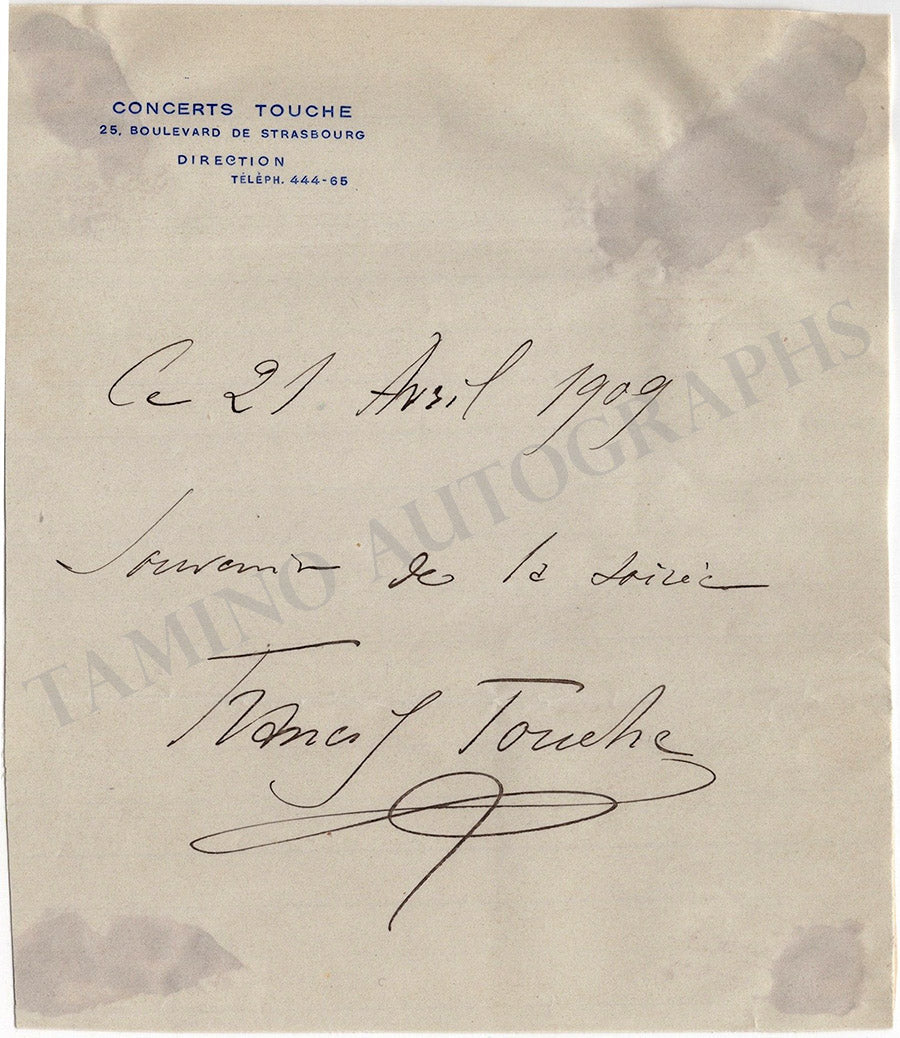 CONCERTS TOUCHE
25, BOULEVARD DE STRASBOURG
DIRECTION
TÉLÉPH. 444-65
Ce 21 Avril 1909
Souvenir de la soirée
Francis Touche
TAMINO AUTOGRAPHS